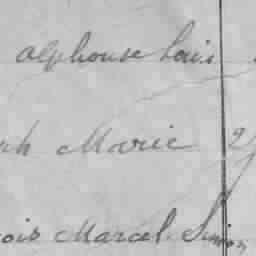 alphonse Louis
ph Marie 2
ois Marcel Simon